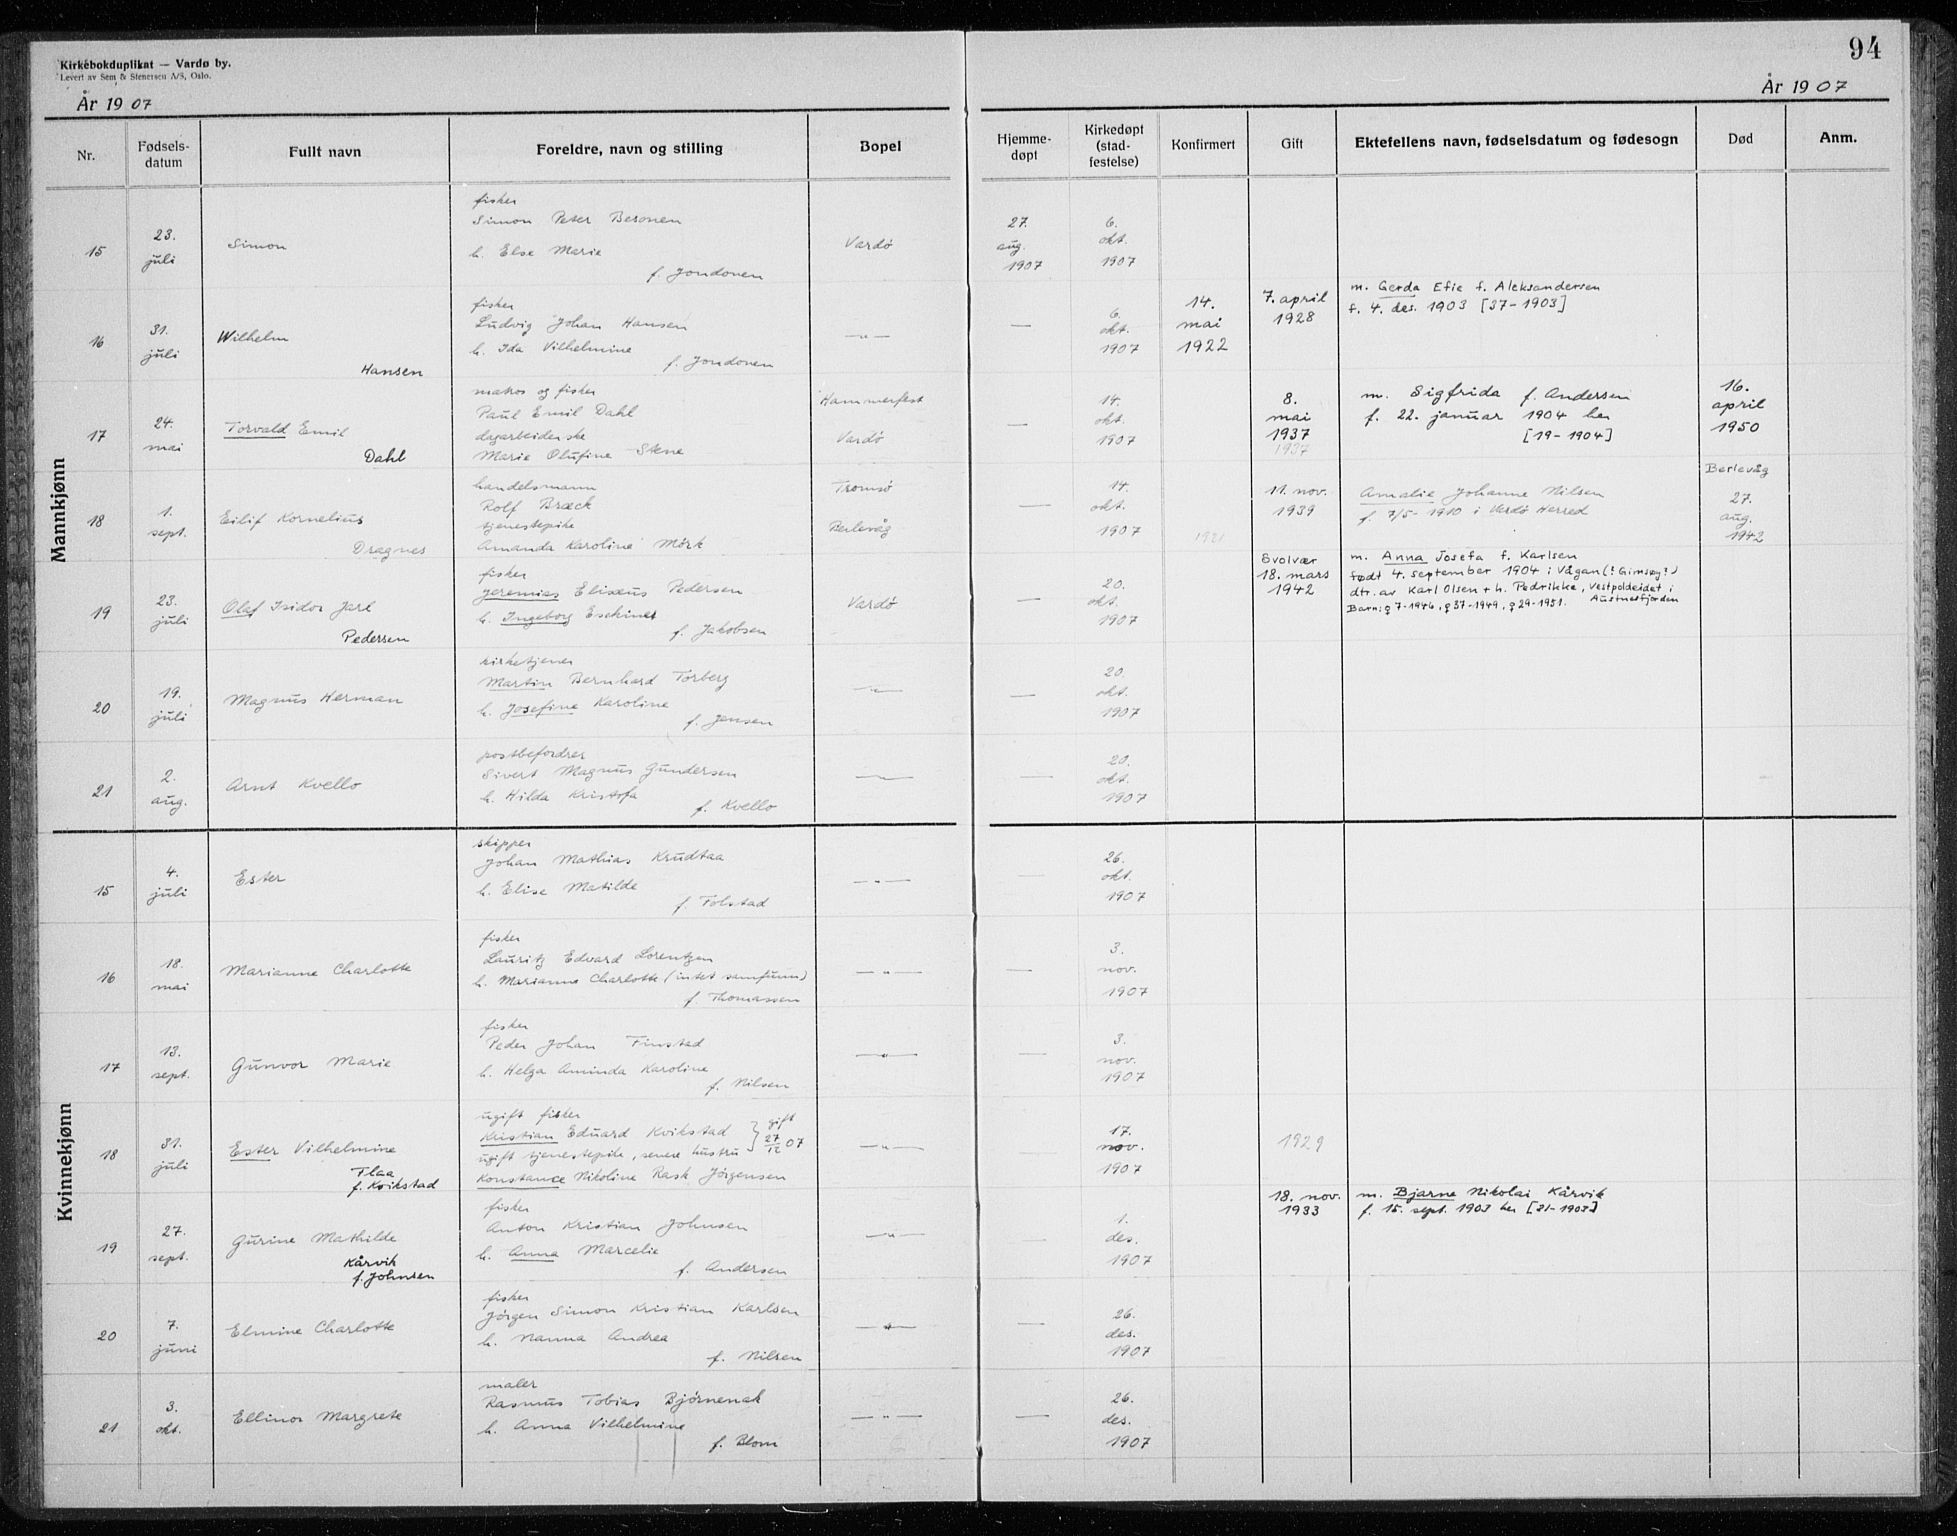 94
Kirkebokduplikat — Vardø by.
Levert av Sem & Stenersen A/S, Oslo.
År 1907
År 1907
Nr.
Fødsels-
datum
Fullt navn
Foreldre, navn og stilling
Bopel
Hjemme-
døpt
Kirkedøpt
(stad-
festelse)
Konfirmert
Gift
Ektefellens navn, fødselsdatum og fødesogn
Død
Anm.
Mannkjønn
15
23.
juli
Simon
fisker
Simon Peter Beronen
h. Else Marie
f. Jondonen
Vardö
27.
aug.
1907
6.
okt.
1907
16
31.
juli
Wilhelm
Hansen
fisker
Ludvig Johan Hansen
h. Ida Vilhelmine
f. Jondonen
—"—
—
6.
okt.
1907
14.
mai
1922
7. april
1928
m. Gerda Efie f. Aleksandersen
f. 4. des. 1903 [37-1903]
17
24.
mai
Torvald Emil
Dahl
matros og fisker
Paul Emil Dahl
dagarbeiderske
Marie Olufine Stene
Hammerfest
Vardö
—
14.
okt.
1907
8.
mai
1937
1937
m. Sigfrida f. Andersen
f. 22. januar 1904 her
[19-1904]
16.
april
1950
18
1.
sept.
Eilif Kornelius
Dragnes
handelsmann
Rolf Bræck
tjenestepike
Amanda Karoline Mörk
Tromsö
Berlevåg
—
14.
okt.
1907
1921
11. nov.
1939
Amalie Johanne Nilsen
f. 7/5-1910 i Vardö Herred
Berlevåg
27.
aug.
1942
19
23.
juli
Olaf Isidor Jarl
Pedersen
fisker
Jeremias Elisæus Pedersen
h. Ingeborg Eschine
f. Jakobsen
Vardö
—
20.
okt.
1907
Svolvær
18. mars
1942
m. Anna Josefa f. Karlsen
født 4. september 1904 i Vågan (! Gimsøy?)
dtr. av Karl Olsen + h. Pedrikke, Vestpoldeidet i
Austnesfjorden
Barn: ♀ 7-1946, ♀ 37-1949, ♀ 29-1951.
20
19.
juli
Magnus Herman
kirketjener
Martin Bernhard Torberg
h. Josefine Karoline
f. Jensen
—"—
—
20.
okt.
1907
21
2.
aug.
Arnt Kvello
postbefordrer
Sivert Magnus Gundersen
h. Hilda Kristofa
f. Kvello
—"—
—
20.
okt.
1907
Kvinnekjønn
15
4.
juli
Ester
skipper
Johan Mathias Krudtaa
h. Elise Matilde
f. Tolstad
—"—
—
26.
okt.
1907
16
18.
mai
Marianne Charlotte
fisker
Lauritz Edvard Lorentzen
h. Marianne Charlotte (intet samfunn)
f. Thomassen
—"—
—
3.
nov.
1907
17
13.
sept.
Gunvor Marie
fisker
Peder Johan Finstad
h. Helga Aminda Karoline
f. Nilsen
—"—
—
3.
nov.
1907
18
31.
juli
Ester Vilhelmine
Flaa
f. Kvikstad
ugift fisker
Kristian Eduard Kvikstad
ugift tjenestepike, senere hustru
Konstance Nikoline Rask Jörgensen
} gift
27/12 07
—"—
—
17.
nov.
1907
1929
19
27.
sept.
Gurine Mathilde
Kårvik
f. Johnsen
fisker
Anton Kristian Johnsen
h. Anna Marcelie
f. Andersen
—"—
1.
des.
1907
18. nov.
1933
m. Bjarne Nikolai Kårvik
f. 15. sept. 1903 her [21-1903]
20
7.
juni
Elmine Charlotte
fisker
Jörgen Simon Kristian Karlsen
h. Nanna Andrea
f. Nilsen
—"—
—
26.
des.
1907
21
3.
okt.
Ellinor Margrete
maler
Rasmus Tobias Björnenak
h. Anna Vilhelmine
f. Blom
—"—
—
26.
des.
1907